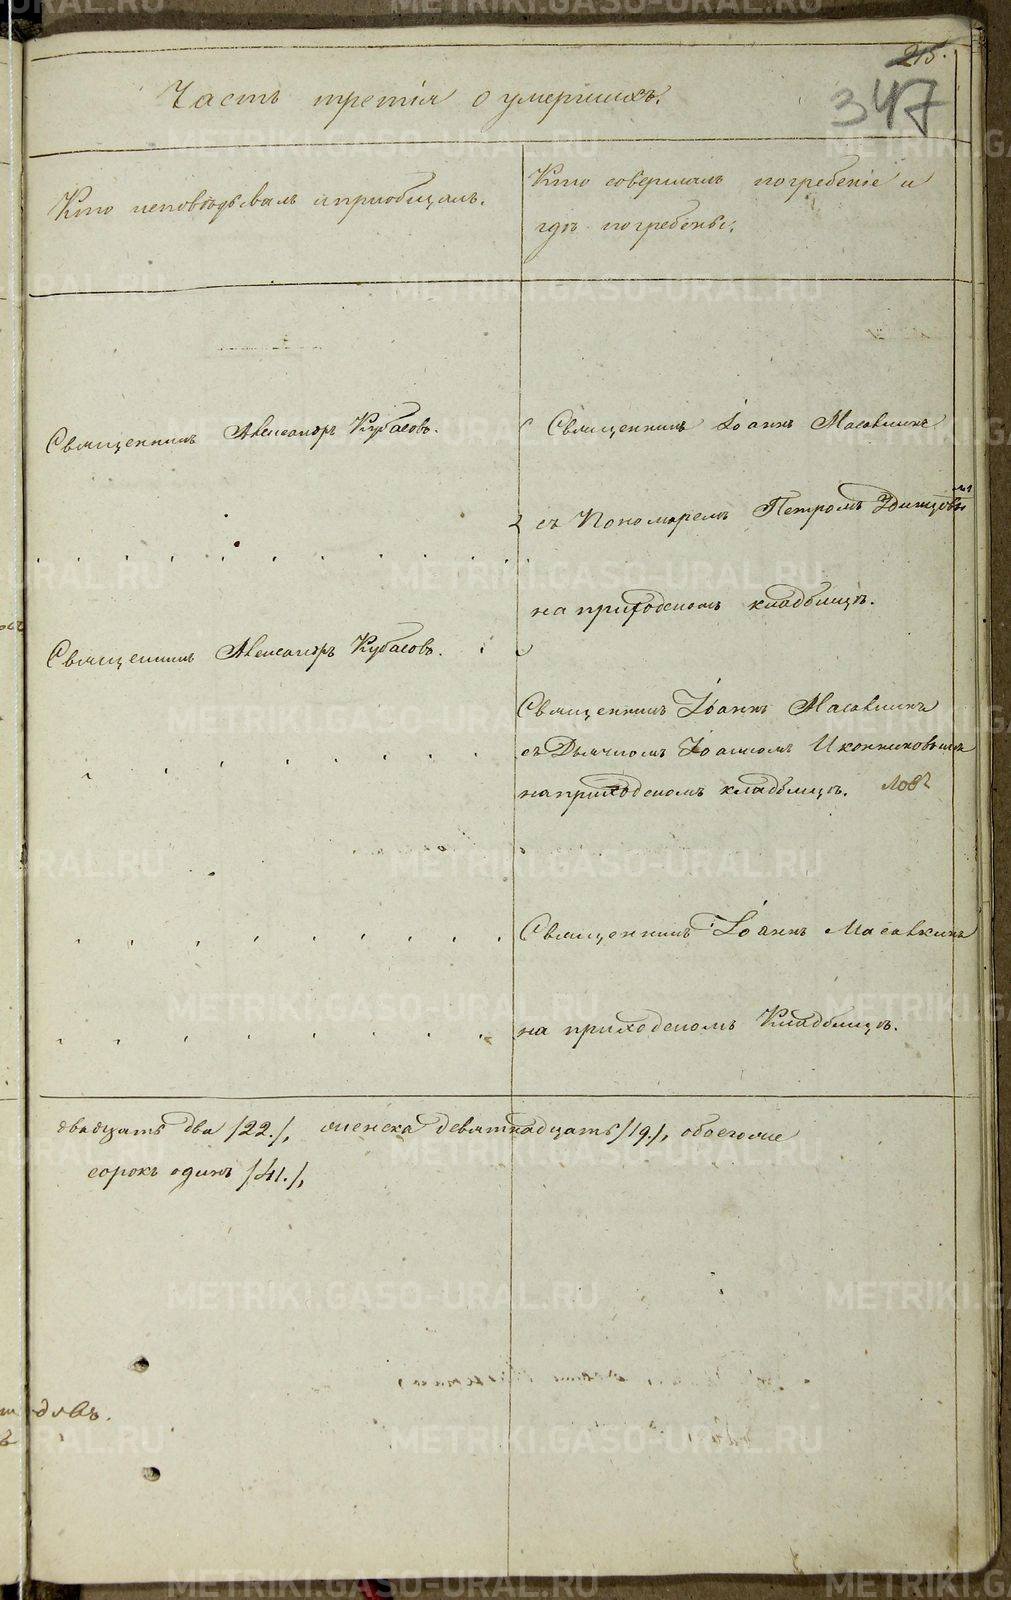 215.
347
Часть третія о умершихъ.
Кто исповѣдывалъ и пріобщалъ.
Кто совершалъ погребеніе и
гдѣ погребены.
Священникъ Александръ Кубасовъ.
Священникъ Іоаннъ
съ Пономаремъ Петромъ
на приходскомъ кладбищѣ.
Священникъ Александръ Кубасовъ.
Священникъ Іоаннъ
съ Дьячкомъ Іоанномъ Иконниковымъ
на приходскомъ кладбищѣ.
Священникъ Іоаннъ
на приходскомъ Кладбищѣ.
двадцать два /22./, женска девятнадцать /19./, обоего
сорокъ одинъ /41./,
METRIKI.GASO-URAL.RU